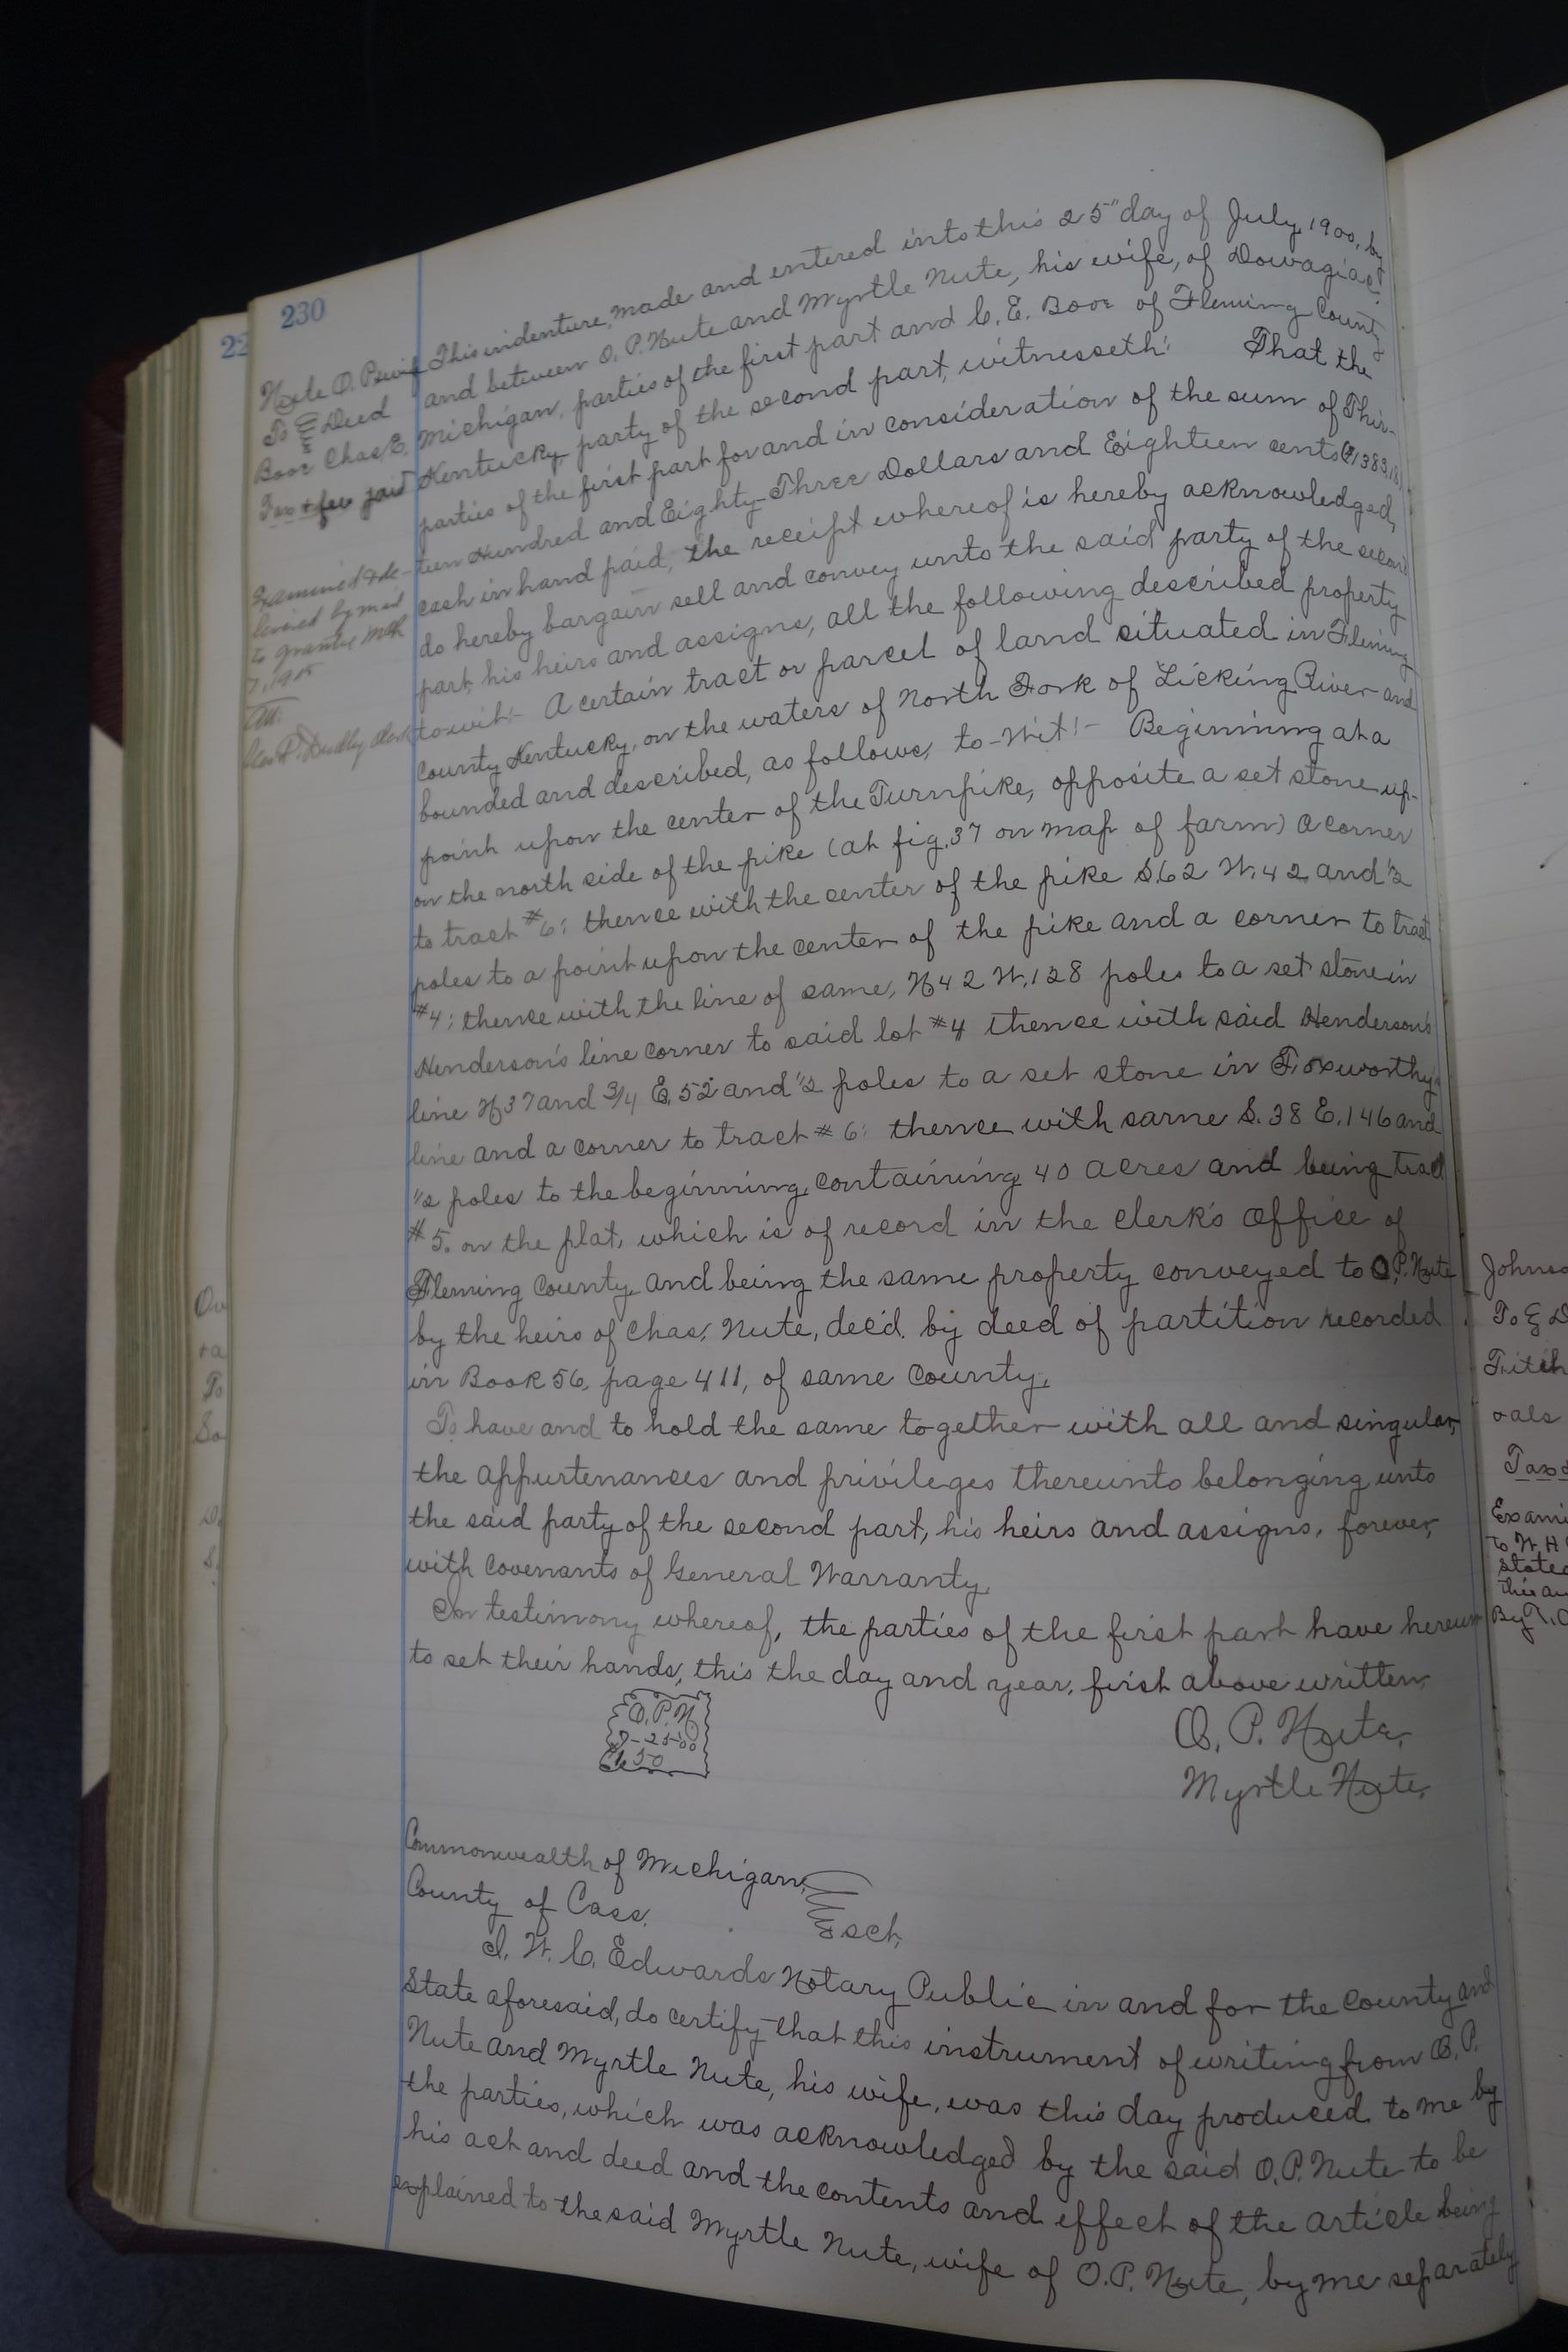 22
230
Nute O. P. & wife
To } Deed
Boor Chas. E.
Tax & fee paid
Examined & de-
livered by mail
to grantee Mch
7, 1905
Att.
Dudly clerk
This indenture, made and entered into this 25" day of July, 1900, by
and between O. P. Nute and Myrtle Nute, his wife, of Dowagiac,
Michigan, parties of the first part and C. E. Boor of Fleming County
Kentucky, party of the second part, witnesseth: That the
parties of the first part for and in consideration of the sum of Thir-
teen Hundred and Eighty Three Dollars and Eighteen cents ($1383.18)
cash in hand paid, the receipt whereof is hereby acknowledged,
do hereby bargain sell and convey unto the said party of the second
part, his heirs and assigns, all the following described property
to wit:- A certain tract or parcel of land situated in Fleming
County Kentucky, on the waters of North Fork of Licking River and
bounded and described, as follows, to-wit:- Beginning at a
point upon the center of the Turnpike, opposite a set stone up-
on the north side of the pike (at fig. 37 on map of farm) a corner
to tract #6: thence with the center of the pike S. 62 W. 42 and 1/2
poles to a point upon the center of the pike and a corner to tract
#4; thence with the line of same, N 42 W. 128 poles to a set stone in
Henderson's line corner to said lot #4 thence with said Henderson's
line N 37 and 3/4 E. 52 and 1/2 poles to a set stone in Foxworthy's
line and a corner to tract #6: thence with same S. 38 E. 146 and
1/2 poles to the beginning, containing 40 acres and being tract
#5. on the plat, which is of record in the Clerk's Office of
Fleming County, and being the same property conveyed to O. P. Nute
by the heirs of Chas. Nute, dec'd. by deed of partition recorded
in Book 56, page 411, of same County.
To have and to hold the same together with all and singular,
the appurtenances and privileges thereunto belonging unto
the said party of the second part, his heirs and assigns, forever,
with Covenants of General Warranty.
In testimony whereof, the parties of the first part have hereun-
to set their hands, this the day and year, first above written.
O. P. N
7-25-00
$1.50
O. P. Nute,
Myrtle Nute,
Commonwealth of Michigan,
County of Cass. } sct,
I, W. C. Edwards Notary Public in and for the County and
State aforesaid, do certify that this instrument of writing from O. P.
Nute and Myrtle Nute, his wife, was this day produced to me by
the parties, which was acknowledged by the said O. P. Nute to be
his act and deed and the contents and effect of the article being
explained to the said Myrtle Nute, wife of O. P. Nute, by me separately
Johnso
To } D
Fitch
oals
Tax &
Exami
to W. H
stated
this au
By